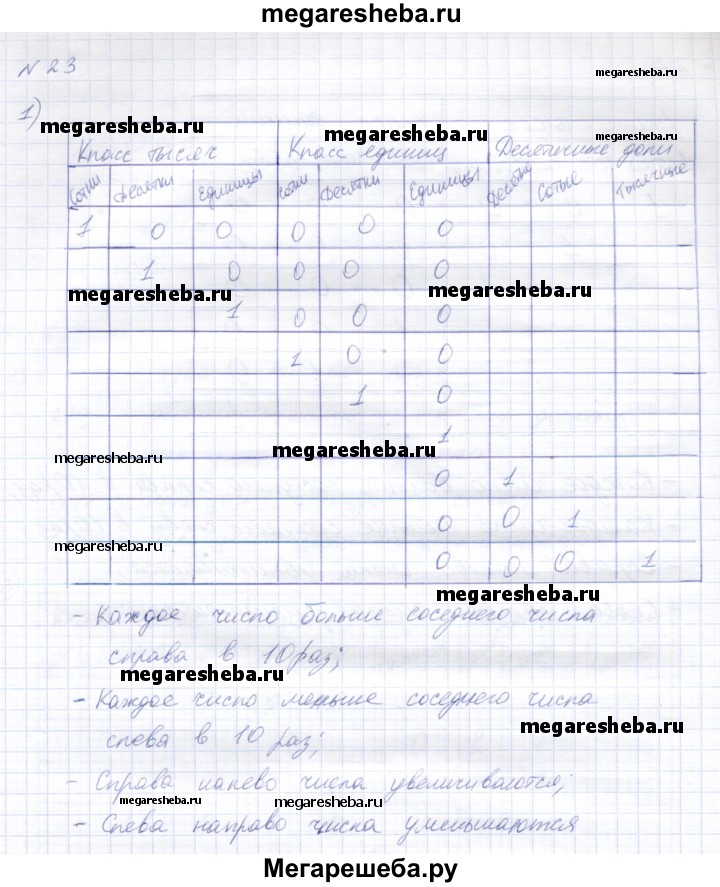 megaresheba.ru
N 23
megaresheba.ru
1)
megaresheba.ru megaresheba.ru megaresheba.ru
Класс тысяч Класс единиц Десятичные доли
Сотни Десятки Единицы Сотни Десятки Единицы Десятые Сотые Тысячные
1 0 0 0 0 0
1 0 0 0 0
megaresheba.ru megaresheba.ru
1 0 0 0
1 0 0
1 0
1
megaresheba.ru megaresheba.ru
0 1
0 0 1
megaresheba.ru
0 0 0 1
megaresheba.ru
- Каждое число больше соседнего числа
справа в 10 раз;
megaresheba.ru
- Каждое число меньше соседнего числа
слева в 10 раз;
megaresheba.ru
- Справа налево числа увеличиваются;
megaresheba.ru megaresheba.ru
- Слева направо числа уменьшаются
Мегарешеба.ру